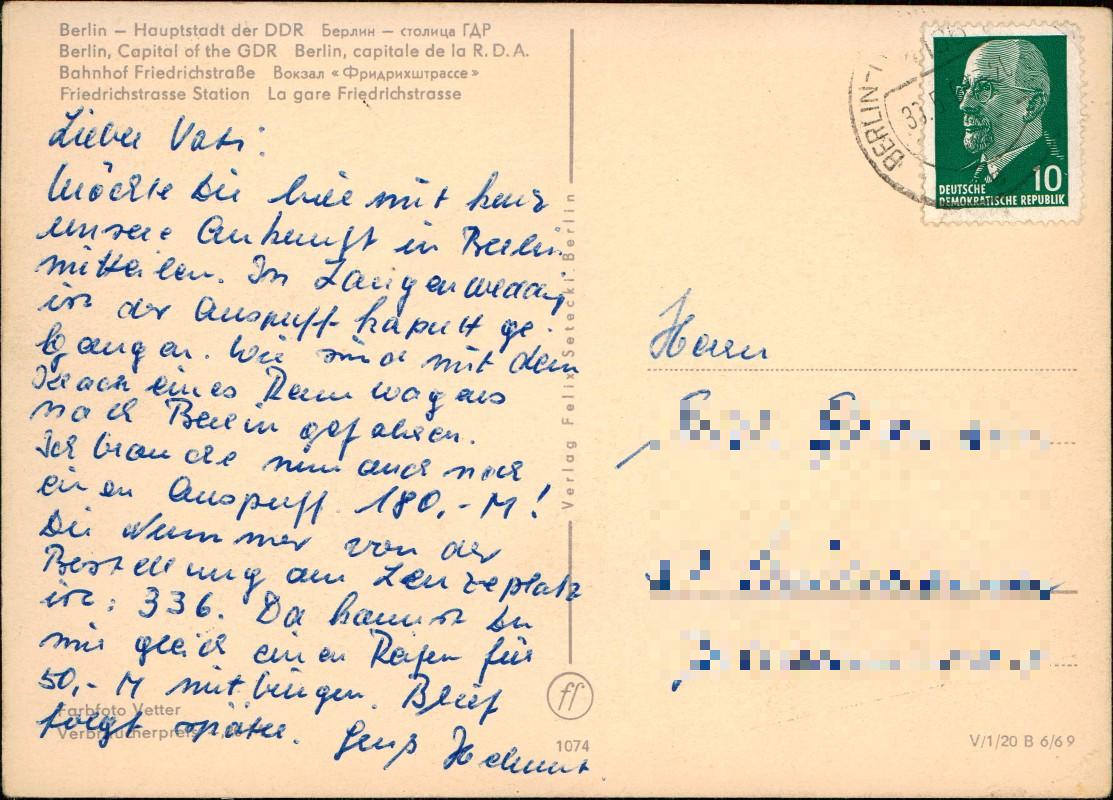 Berlin – Hauptstadt der DDR Берлин – столица ГДР
Berlin, Capital of the GDR Berlin, capitale de la R.D.A.
Bahnhof Friedrichstraße Вокзал «Фридрихштрассе»
Friedrichstrasse Station La gare Friedrichstrasse
Lieber Vati!
Möchte Dir hier mit kurz
unsere Ankunft in Berlin
mitteilen. In Langenwedding
ist der Auspuff kaputt ge-
gangen. Wir sind mit dem
Krach eines Rennwagens
nach Berlin gefahren.
Ich brauche nun auch noch
einen Auspuff 180,- M!
Die Nummer von der
Bestellung am Lenzeplatz
ist: 336. Da kannst Du
mir gleich einen Reifen für
50,- M mitbringen. Brief
folgt später. Gruß Helmut
Farbfoto Vetter
Verbraucherpreis
Verlag Felix Setecki, Berlin
ff
1074
BERLIN
DEUTSCHE
DEMOKRATISCHE REPUBLIK
10
Herrn
V/1/20 B 6/69